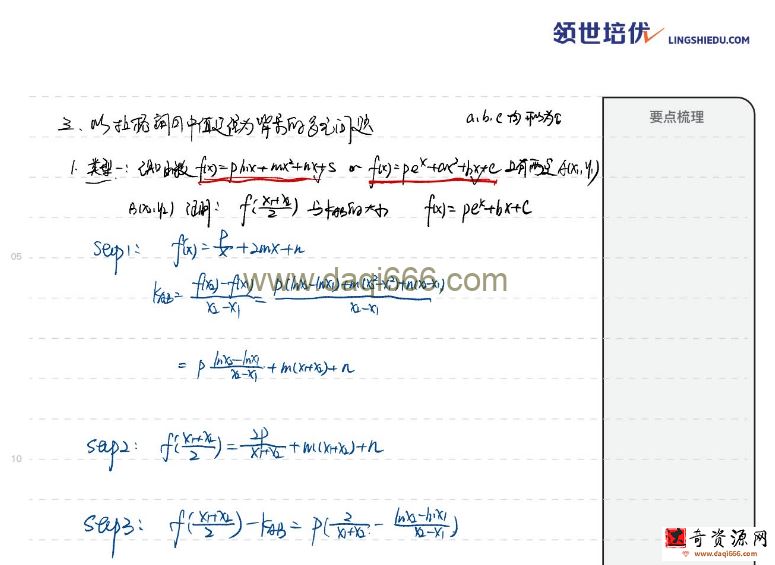 领世培优
LINGSHIEDU.COM
要点梳理
三、以拉格朗日中值定理为背景的多元问题
a、b、c 均不为0
1. 类型一: 已知函数 f(x)=plnx+mx²+nx+s or f(x)=pe^x+ax²+bx+c 上有两点 A(x₁,y₁)
B(x₂,y₂) 证明: f'((x₁+x₂)/2) 与k_AB的大小 f(x)=pe^x+bx+c
05
Step1: f'(x)=p/x+2mx+n
www.daqi666.com
k_AB=(f(x₂)-f(x₁))/(x₂-x₁)=(p(lnx₂-lnx₁)+m(x₂²-x₁²)+n(x₂-x₁))/(x₂-x₁)
=p (lnx₂-lnx₁)/(x₂-x₁)+m(x₁+x₂)+n
10
Step2: f'((x₁+x₂)/2)=2p/(x₁+x₂)+m(x₁+x₂)+n
Step3: f'((x₁+x₂)/2)-k_AB=p(2/(x₁+x₂)-(lnx₂-lnx₁)/(x₂-x₁))
大奇资源网
www.daqi666.com